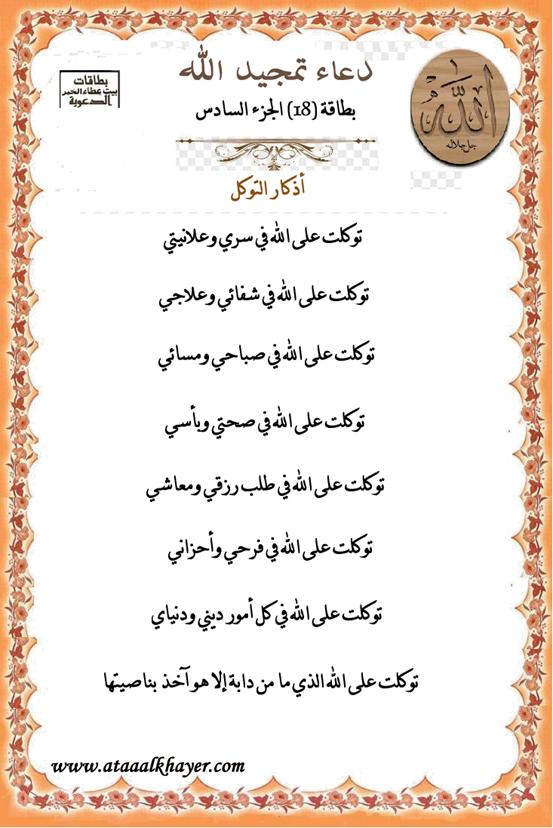 دعاء تمجيد الله
بطاقة (18) الجزء السادس
بطاقات
بيت عطاء الخير
الدعوية
الله
جل جلاله
أذكار التوكل
توكلت على الله في سري وعلانيتي
توكلت على الله في شفائي وعلاجي
توكلت على الله في صباحي ومسائي
توكلت على الله في صحتي وبأسي
توكلت على الله في طلب رزقي ومعاشي
توكلت على الله في فرحي وأحزاني
توكلت على الله في كل أمور ديني ودنياي
توكلت على الله الذي ما من دابة إلا هو آخذ بناصيتها
www.ataaalkhayer.com